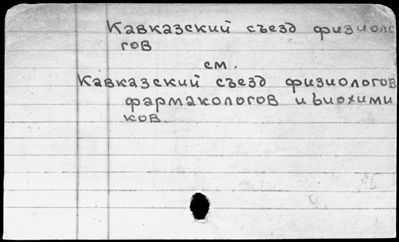 Кавказский съезд физиоло
гов
см.
Кавказский съезд физиологов
фармакологов и биохими
ков.